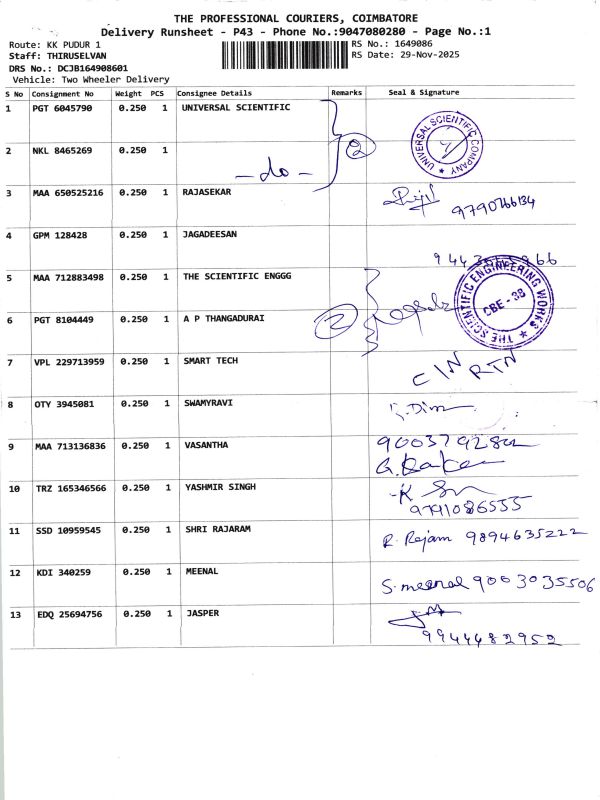 THE PROFESSIONAL COURIERS, COIMBATORE
Delivery Runsheet - P43 - Phone No.:9047080280 - Page No.:1
Route: KK PUDUR 1
RS No.: 1649086
Staff: THIRUSELVAN
RS Date: 29-Nov-2025
DRS No.: DCJB164908601
Vehicle: Two Wheeler Delivery
S No Consignment No Weight PCS Consignee Details Remarks Seal & Signature
1 PGT 6045790 0.250 1 UNIVERSAL SCIENTIFIC
UNIVERSAL SCIENTIFIC COMPANY
2
2 NKL 8465269 0.250 1
- do -
3 MAA 650525216 0.250 1 RAJASEKAR
9790766134
4 GPM 128428 0.250 1 JAGADEESAN
5 MAA 712883498 0.250 1 THE SCIENTIFIC ENGGG
THE SCIENTIFIC ENGINEERING WORKS
CBE - 38
6 PGT 8104449 0.250 1 A P THANGADURAI
2
7 VPL 229713959 0.250 1 SMART TECH
C/N RTN
8 OTY 3945081 0.250 1 SWAMYRAVI
9 MAA 713136836 0.250 1 VASANTHA
10 TRZ 165346566 0.250 1 YASHMIR SINGH
9791086555
11 SSD 10959545 0.250 1 SHRI RAJARAM
R. Rajam 9894635222
12 KDI 340259 0.250 1 MEENAL
S. meenal 9003035506
13 EDQ 25694756 0.250 1 JASPER
9944482952